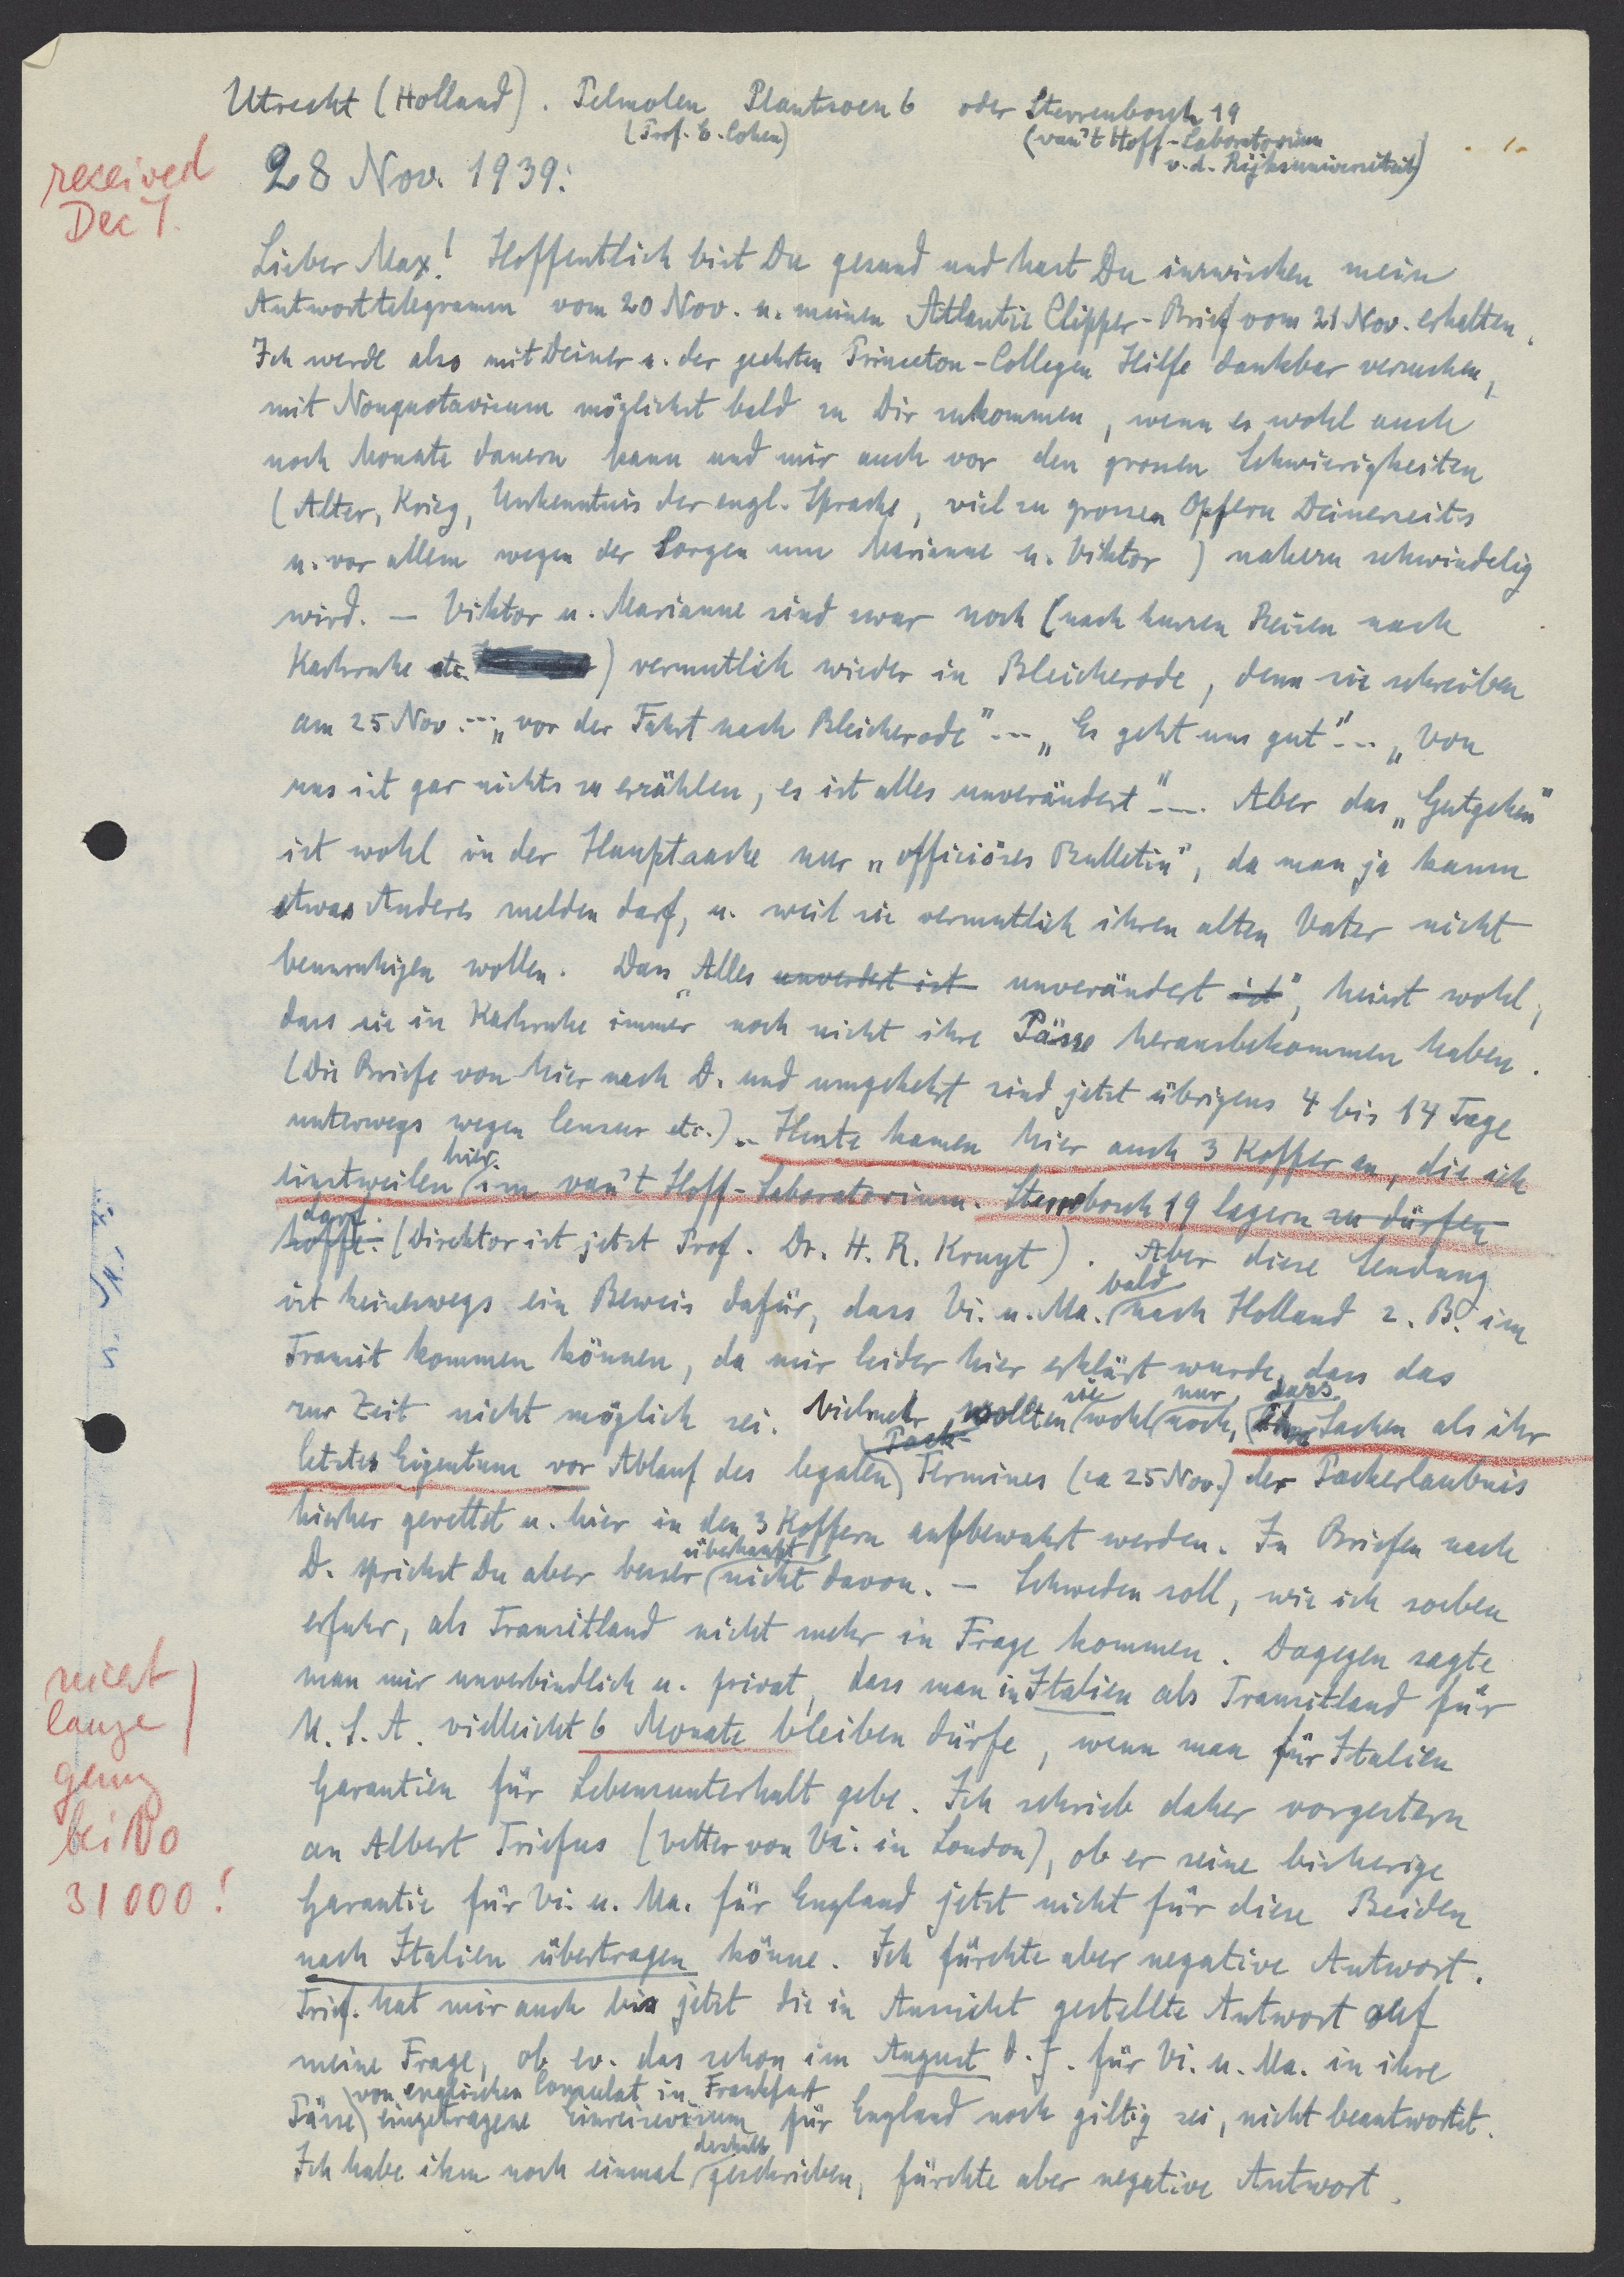 Utrecht (Holland). Telmolen Plantsoen 6 oder Sterrenbosch 19
(Prof. E. Cohen) (van't Hoff-Laboratorium
v. d. Rijksuniversiteit)
received
Dec 7.
28 Nov. 1939:
Lieber Max! Hoffentlich bist Du gesund und hast Du inzwischen mein
Antworttelegramm vom 20 Nov. u. meinen Atlantic Clipper-Brief vom 21 Nov. erhalten.
Ich werde also mit Deiner u. der geehrten Princeton-Collegen Hilfe dankbar versuchen,
mit Nonquotavisum möglichst bald zu Dir zukommen, wenn es wohl auch
noch Monate dauern kann und mir auch vor den grossen Schwierigkeiten
(Alter, Krieg, Unkenntnis der engl. Sprache, viel zu grossen Opfern Deinerseits
u. vor allem wegen der Sorgen um Marianne u. Viktor) nahezu schwindelig
wird. — Viktor u. Marianne sind zwar noch (nach kurzen Reisen nach
Karlsruhe etc. ) vermutlich wieder in Bleicherode, denn sie schreiben
am 25 Nov. --- „vor der Fahrt nach Bleicherode" --- „Es geht uns gut" --- „Von
uns ist gar nichts zu erzählen, es ist alles unverändert" ---. Aber das „Gutgehen"
ist wohl in der Hauptsache nur „officiöses Bulletin", da man ja kaum
etwas Anderes melden darf, u. weil sie vermutlich ihren alten Vater nicht
beunruhigen wollen. Dass „Alles unverdert ist unverändert ist", heisst wohl,
dass sie in Karlsruhe immer noch nicht ihre Pässe herausbekommen haben.
(Die Briefe von hier nach D. und umgekehrt sind jetzt übrigens 4 bis 14 Tage
unterwegs wegen Censur etc.) — Heute kamen hier auch 3 Koffer an, die ich
einstweilen hier im van't Hoff-Laboratorium. Sterrebosch 19 lagern zu dürfen
hoffe. darf. (Direktor ist jetzt Prof. Dr. H. R. Kruyt). Aber diese Sendung
ist keineswegs ein Beweis dafür, dass Vi. u. Ma. bald nach Holland z. B. im
Transit kommen können, da mir leider hier erklärt wurde, dass das
zur Zeit nicht möglich sei. Vielmehr wollten sie wohl nur noch, dass Sachen als ihr
letztes Eigentum vor Ablauf des legalen Pack- Termines (ca 25 Nov.) der Packerlaubnis
hierher gerettet u. hier in den 3 Koffern aufbewahrt werden. In Briefen nach
D. sprichst Du aber besser überhaupt nicht davon. — Schweden soll, wie ich soeben
erfuhr, als Transitland nicht mehr in Frage kommen. Dagegen sagte
man mir unverbindlich u. privat, dass man in Italien als Transitland für
U. S. A. vielleicht 6 Monate bleiben dürfe, wenn man für Italien
Garantien für Lebensunterhalt gebe. Ich schrieb daher vorgestern
nicht
lange
genug
bei No
31000!
an Albert Triefus (Vetter von Vi. in London), ob er seine bisherige
Garantie für Vi. u. Ma. für England jetzt nicht für diese Beiden
nach Italien übertragen könne. Ich fürchte aber negative Antwort.
Trief. hat mir auch bis jetzt die in Aussicht gestellte Antwort auf
meine Frage, ob ev. das schon im August d. J. für Vi. u. Ma. in ihre
Pässe vom englischen Consulat in Frankfurt eingetragene Einreisevisum für England noch giltig sei, nicht beantwortet.
Ich habe ihm noch einmal deshalb geschrieben, fürchte aber negative Antwort.